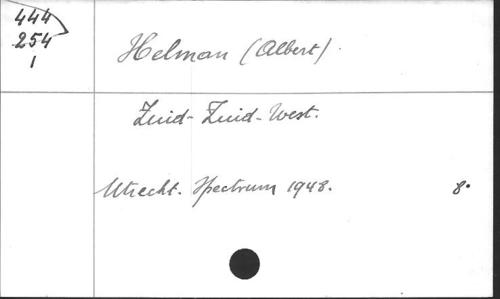 444
254
1
Helman (Albert).
Zuid-Zuid-West.
Utrecht. Spectrum 1948. 8°